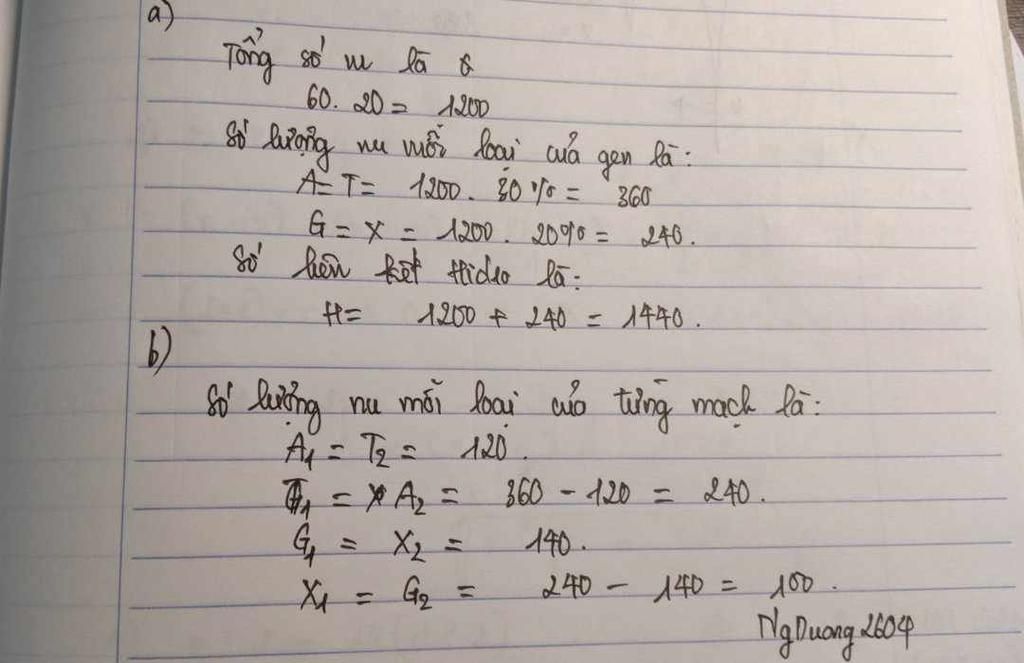 a)
Tổng số nu là
60. 20 = 1200
Số lượng nu mỗi loại của gen là:
A = T = 1200. 30% = 360
G = X = 1200. 20% = 240.
Số liên kết Hidro là:
H = 1200 + 240 = 1440.
b)
Số lượng nu mỗi loại của từng mạch là:
A₁ = T₂ = 120.
T₁ = A₂ = 360 - 120 = 240.
G₁ = X₂ = 140.
X₁ = G₂ = 240 - 140 = 100.
NgDuong2604